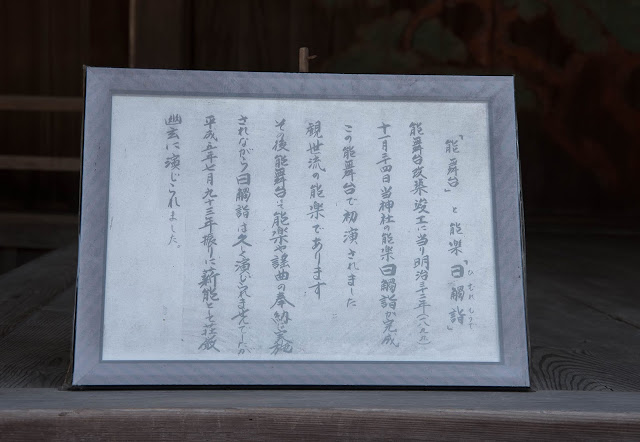 「能舞台」と能楽「日觸詣」
ひむれもうで
能舞台改築竣工に当り明治三十二年(一八九九)
十一月二十四日当神社の能楽日觸詣が完成
この能舞台で初演されました
観世流の能楽であります
その後能舞台は能楽や謡曲の奉納に実施
されながら日觸詣は久しく演じられませんでしたが
平成五年七月九十三年振りに薪能として荘厳
幽玄に演じられました。